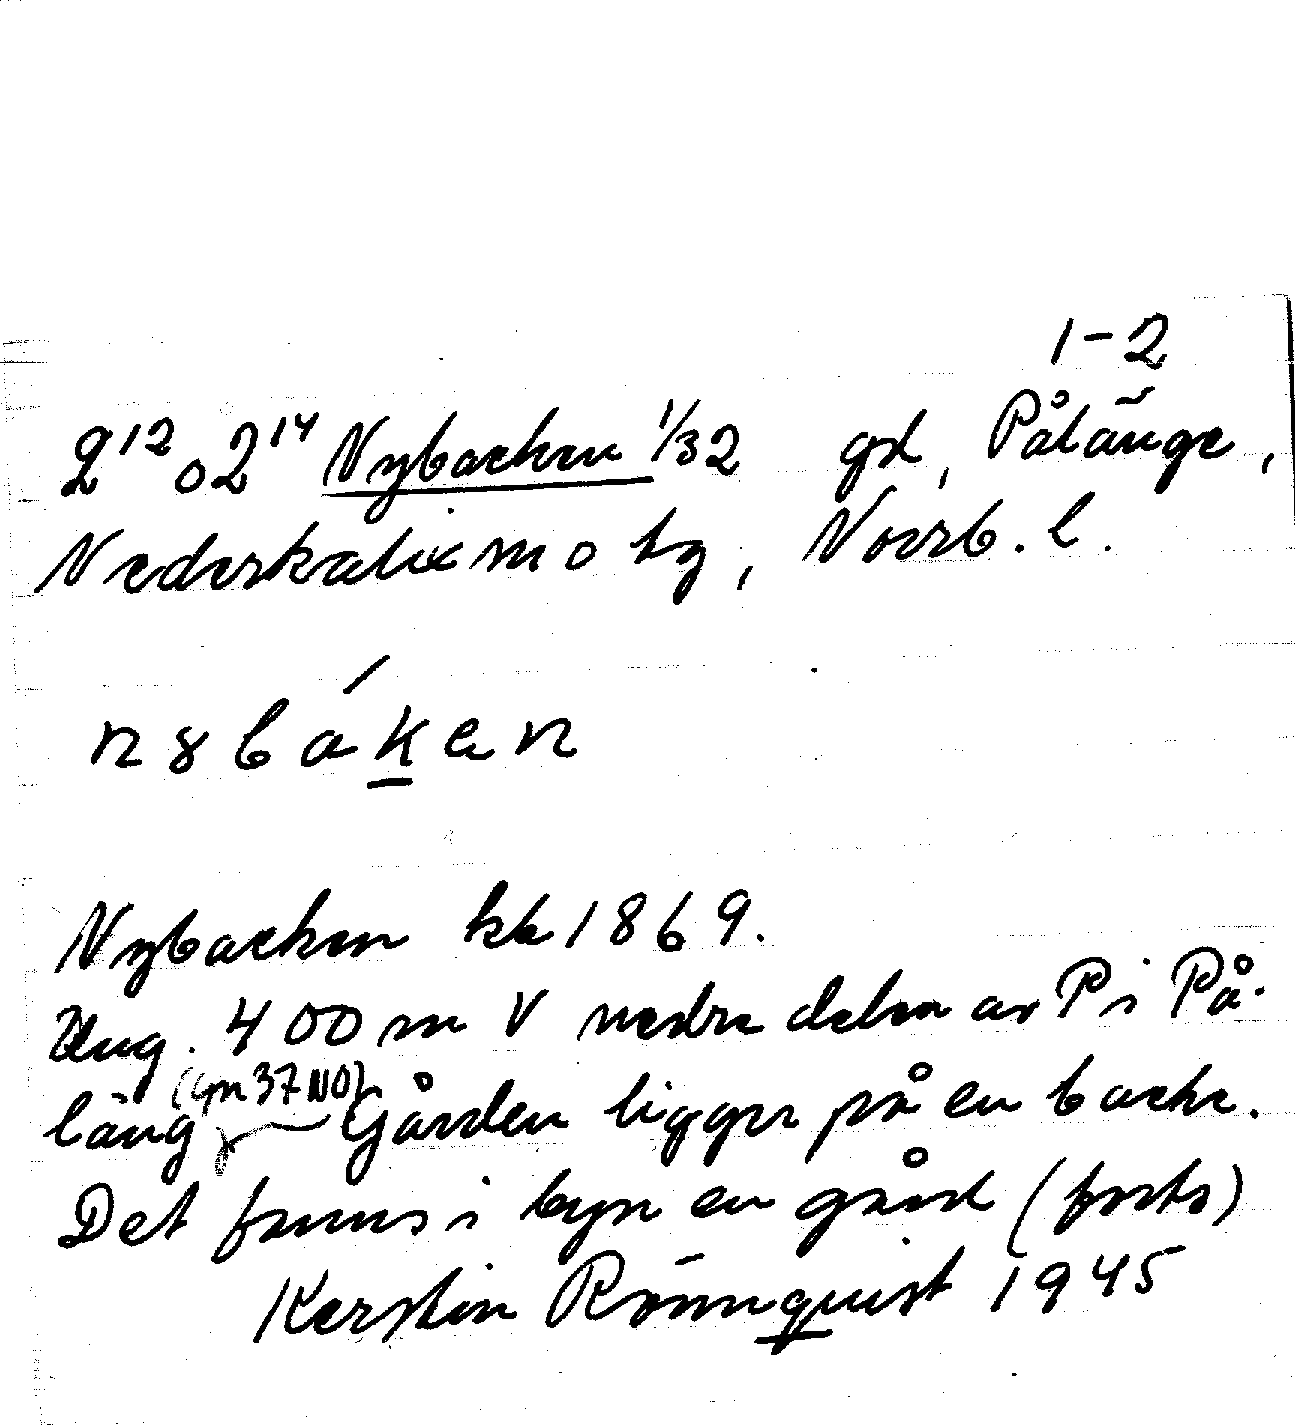 1-2
2¹² o 2¹⁴ Nybacken 1/32 gd, Pålänge,
Nederkalix sn o tg, Norrb. l.
Nybacken kb 1869.
Ung. 400 m V nedre delen av P i På-
läng (gm 37 NO) Gården ligger på en backe.
Det finns i byn en gård (forts)
Kerstin Rönnquist 1945